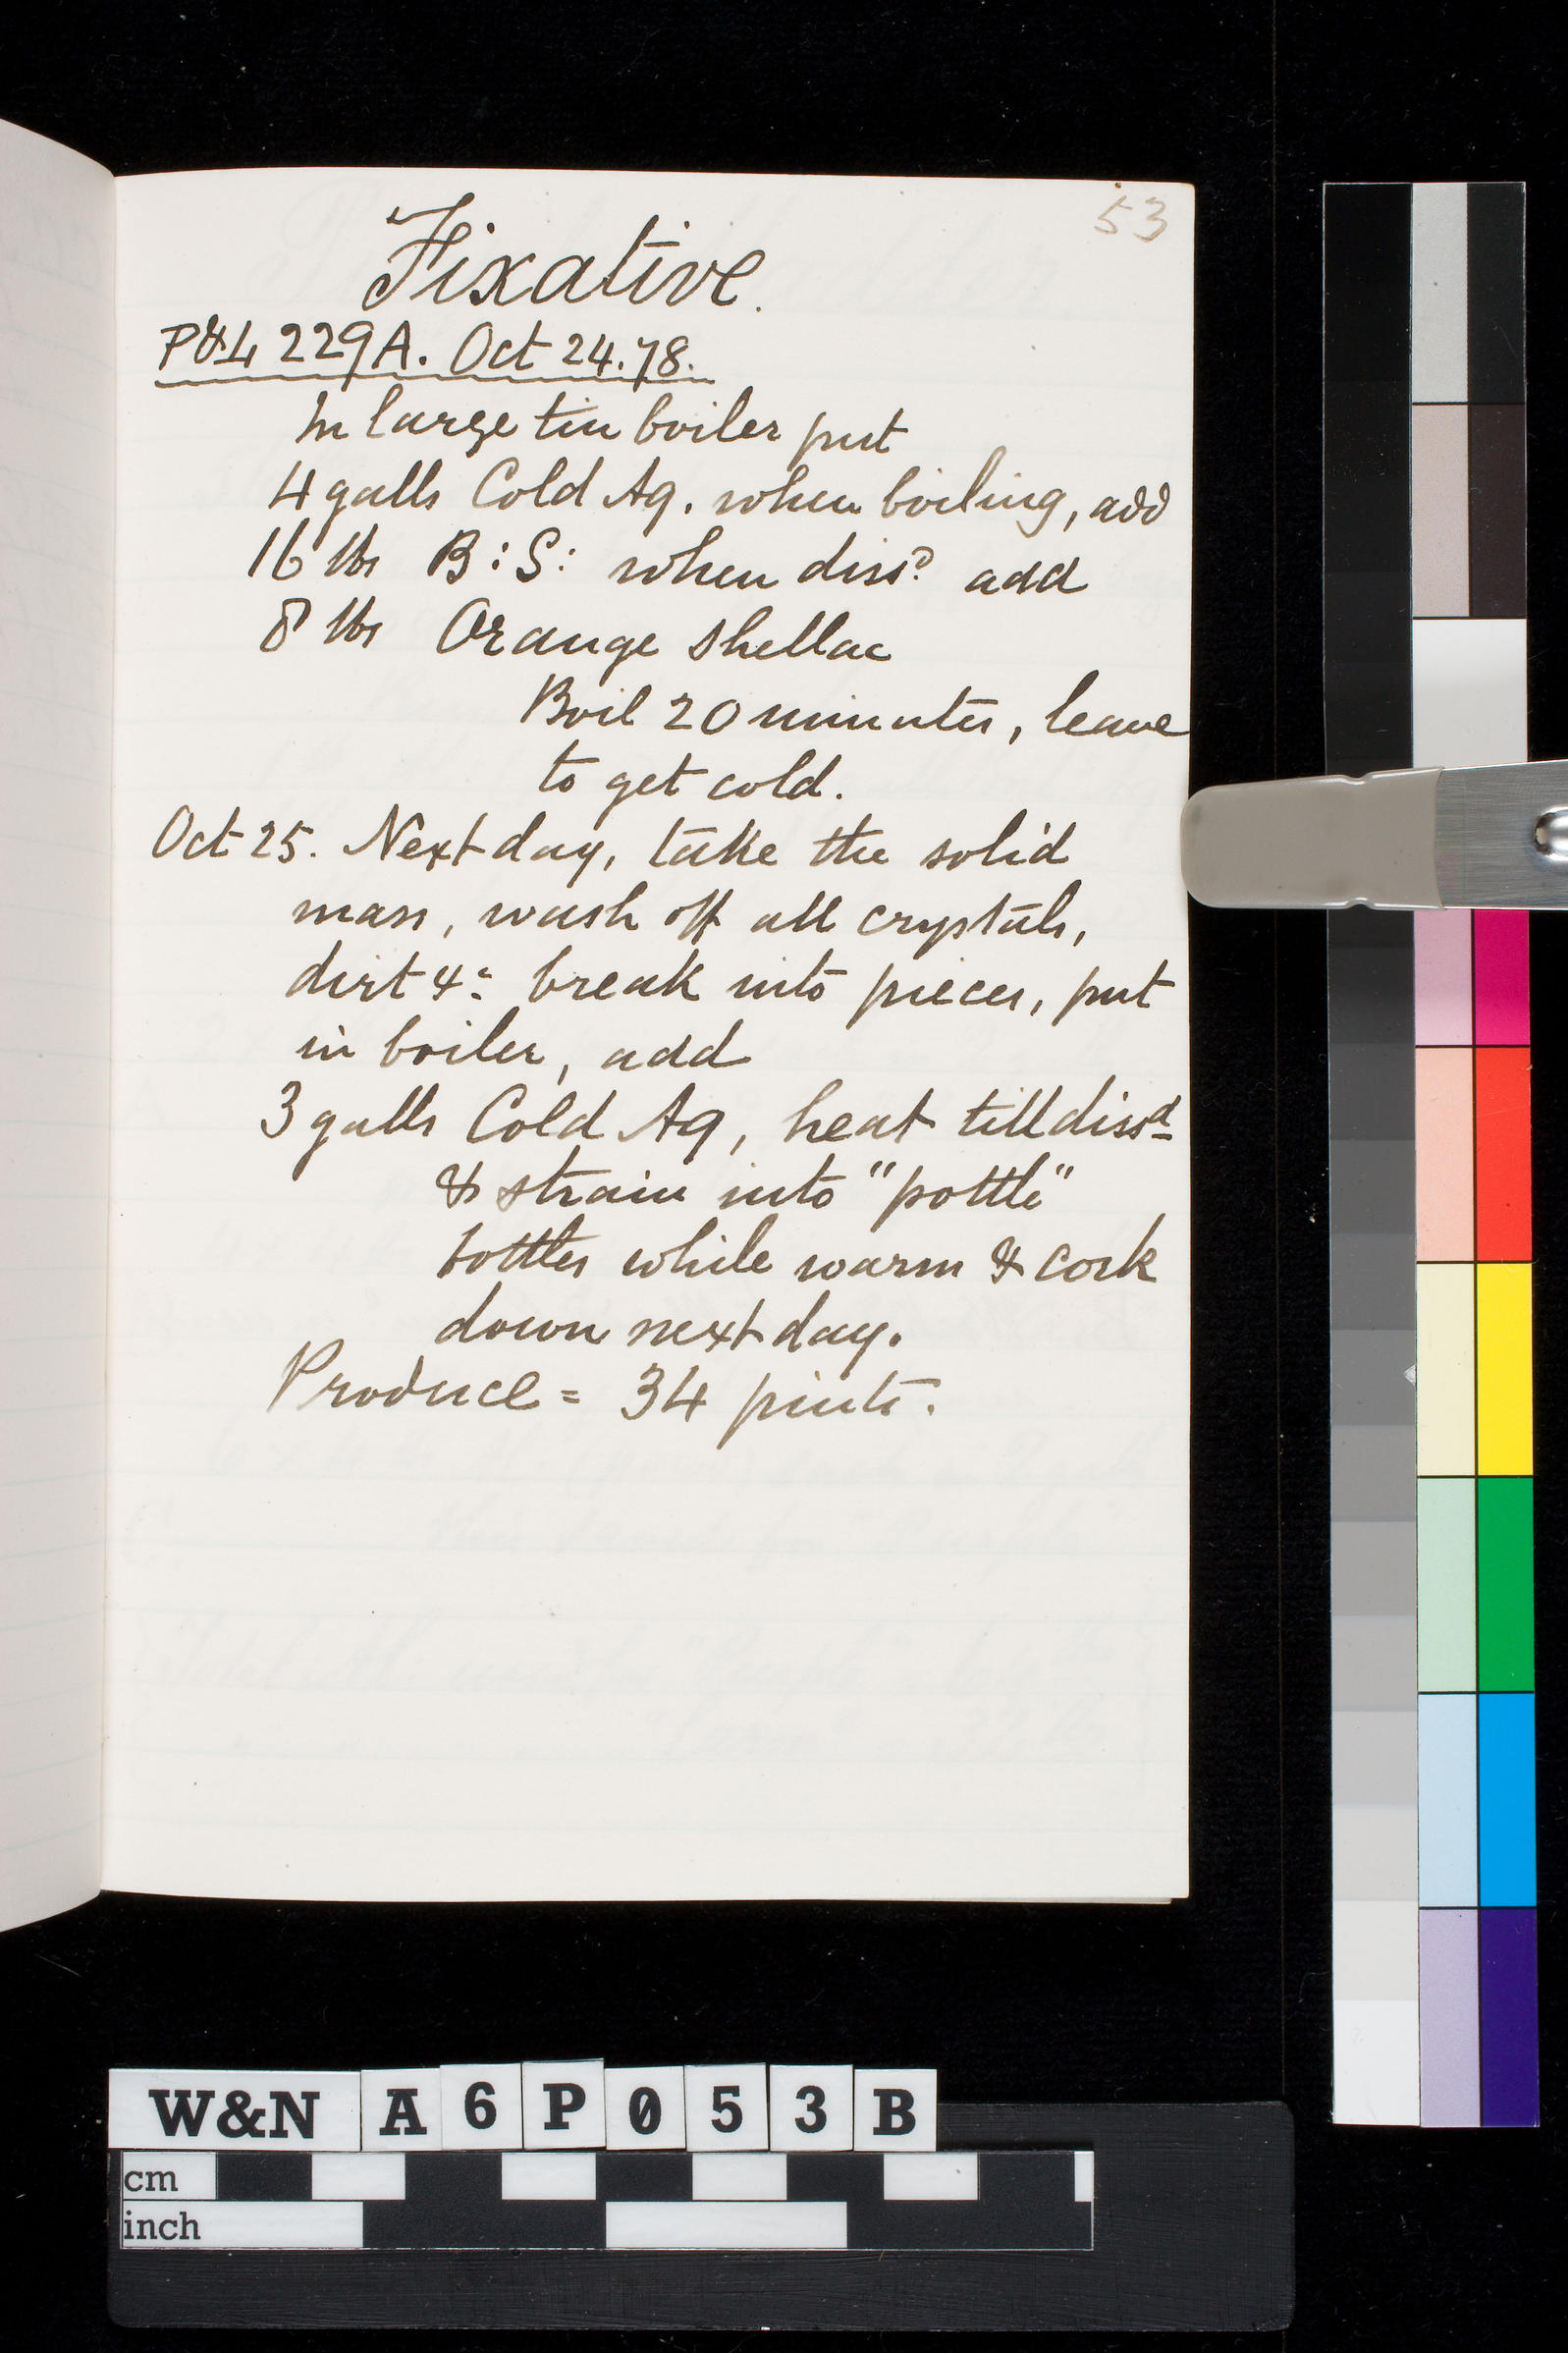 53
Fixative.
P&L 229A. Oct 24.78.
In large tin boiler put
4 galls Cold Aq. when boiling, add
16 lbs B:S: when dissd add
8 lbs Orange Shellac
Boil 20 minutes, leave
to get cold.
Oct 25. Next day, take the solid
mass, wash off all crystals,
dirt &c break into pieces, put
in boiler, add
3 galls Cold Aq, heat till dissd
& strain into "pottle"
bottles while warm & cork
down next day.
Produce = 34 pints.
W&N A6P053B
cm
inch